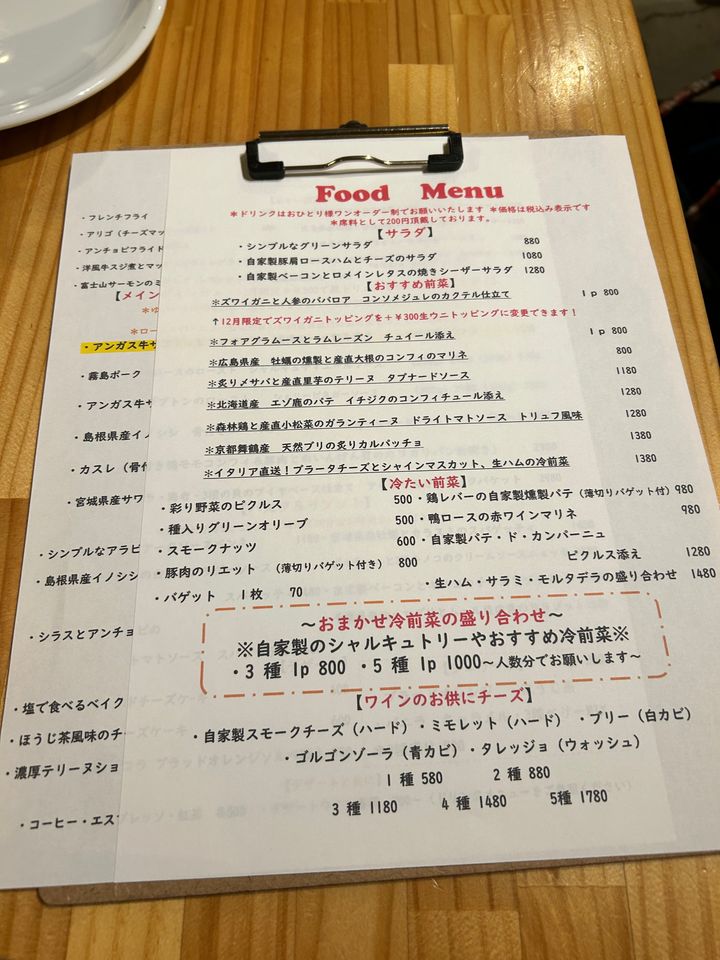 Food Menu
＊ドリンクはおひとり様ワンオーダー制でお願いいたします ＊価格は税込み表示です
＊席料として200円頂戴しております。
【サラダ】
・シンプルなグリーンサラダ 880
・自家製豚肩ロースハムとチーズのサラダ 1080
・自家製ベーコンとロメインレタスの焼きシーザーサラダ 1280
【おすすめ前菜】
＊ズワイガニと人参のババロア コンソメジュレのカクテル仕立て 1p 800
↑12月限定でズワイガニトッピングを＋￥300生ウニトッピングに変更できます！
＊フォアグラムースとラムレーズン チュイール添え 1p 800
＊広島県産 牡蠣の燻製と産直大根のコンフィのマリネ 800
＊炙りメサバと産直里芋のテリーヌ タプナードソース 1180
＊北海道産 エゾ鹿のパテ イチジクのコンフィチュール添え 1280
＊森林鶏と産直小松菜のガランティーヌ ドライトマトソース トリュフ風味 1280
＊京都舞鶴産 天然ブリの炙りカルパッチョ 1380
＊イタリア直送！ブラータチーズとシャインマスカット、生ハムの冷前菜 1380
【冷たい前菜】
・彩り野菜のピクルス 500
・種入りグリーンオリーブ 500
・スモークナッツ 600
・豚肉のリエット （薄切りバゲット付き） 800
・バゲット 1枚 70
・鶏レバーの自家製燻製パテ（薄切りバゲット付） 980
・鴨ロースの赤ワインマリネ 980
・自家製パテ・ド・カンパーニュ
ピクルス添え 1280
・生ハム・サラミ・モルタデラの盛り合わせ 1480
～おまかせ冷前菜の盛り合わせ～
※自家製のシャルキュトリーやおすすめ冷前菜※
・3 種 1p 800 ・5 種 1p 1000～人数分でお願いします～
【ワインのお供にチーズ】
・自家製スモークチーズ（ハード）・ミモレット（ハード） ・ブリー（白カビ）
・ゴルゴンゾーラ（青カビ）・タレッジョ（ウォッシュ）
1 種 580 2 種 880
3 種 1180 4 種 1480 5種 1780
・フレンチフライ
・アリゴ（チーズマッ
・アンチョビフライド
・洋風牛スジ煮とマッ
・富士山サーモンのミ
【メイン
＊ゆ
＊ロー
・アンガス牛サ
・霧島ポーク
・アンガス牛サ
・島根県産イノシ
・カスレ（骨付
・宮城県産サワ
・シンプルなアラビ
・島根県産イノシシ
・シラスとアンチョビ
・塩で食べるベイク
・ほうじ茶風味のチ
・濃厚テリーヌショ
・コーヒー・エス